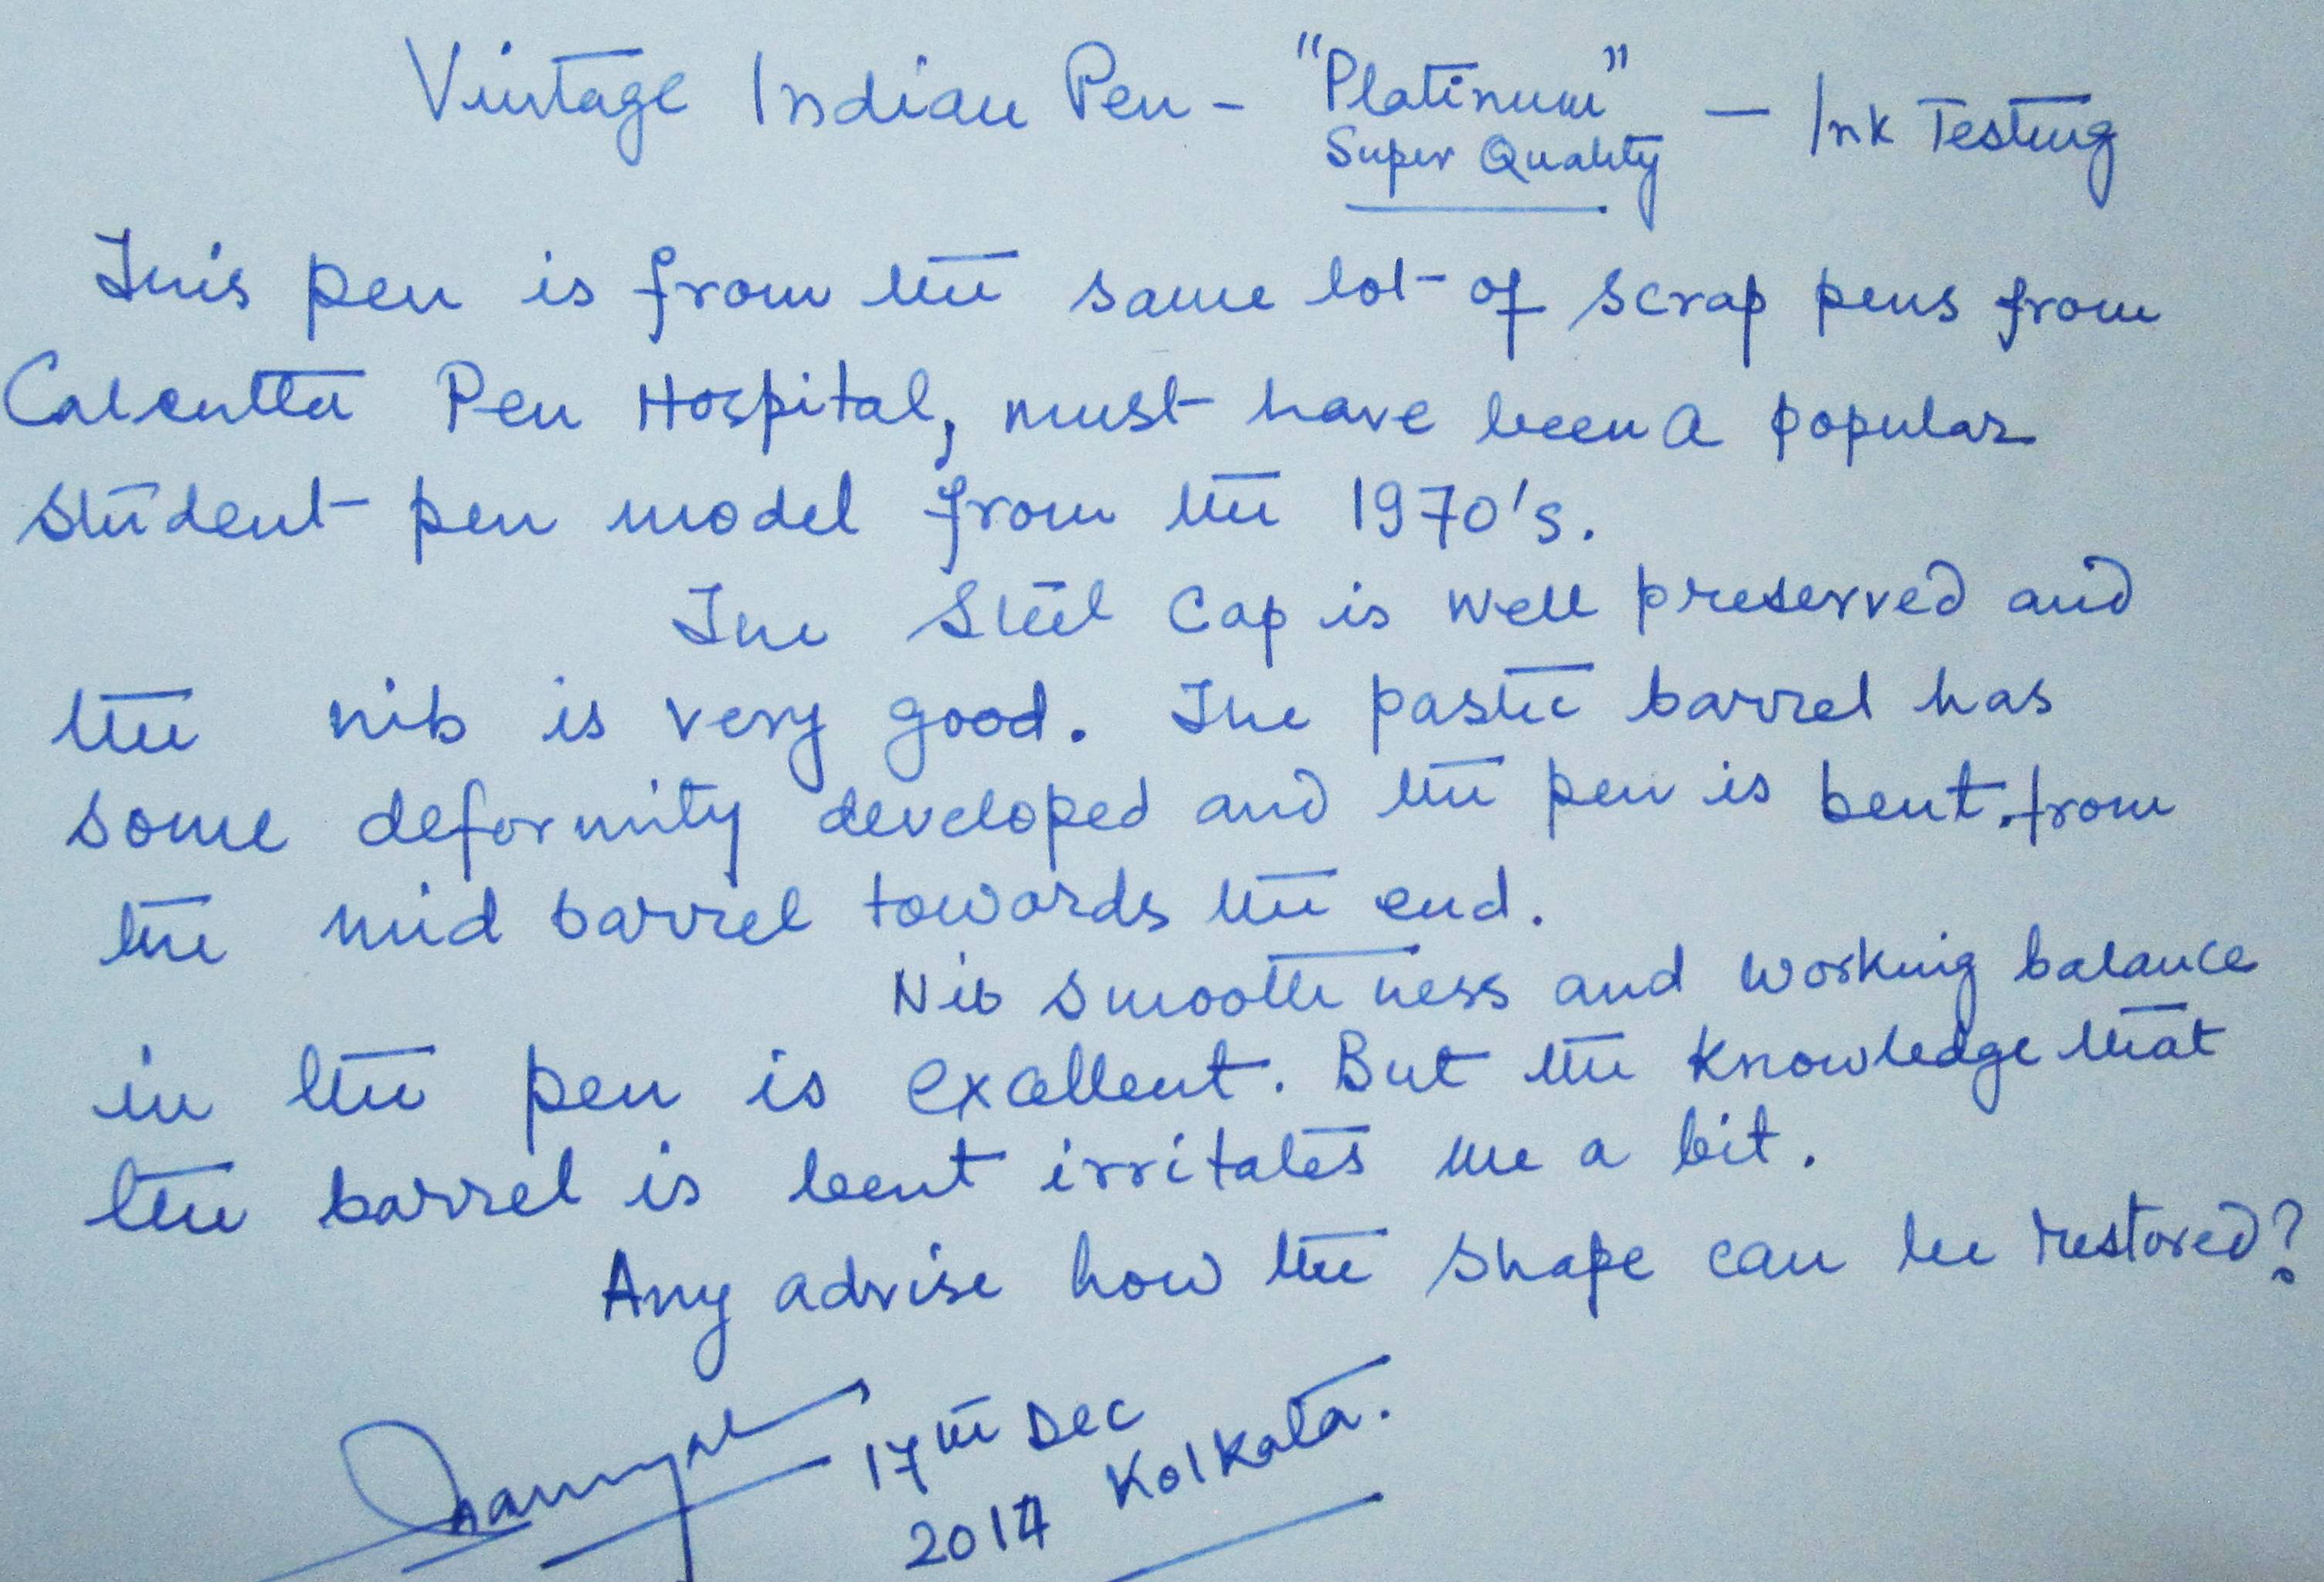 Vintage Indian Pen - "Platinum" — Ink Testing
Super Quality
This pen is from the same lot of scrap pens from
Calcutta Pen Hospital, must have been a popular
student pen model from the 1970's.
The Steel Cap is well preserved and
the nib is very good. The pastic barrel has
some deformity developed and the pen is bent from
the mid barrel towards the end.
Nib smoothness and working balance
in the pen is excellent. But the knowledge that
the barrel is bent irritates me a bit.
Any advise how the shape can be restored?
17th Dec
2014 Kolkata.